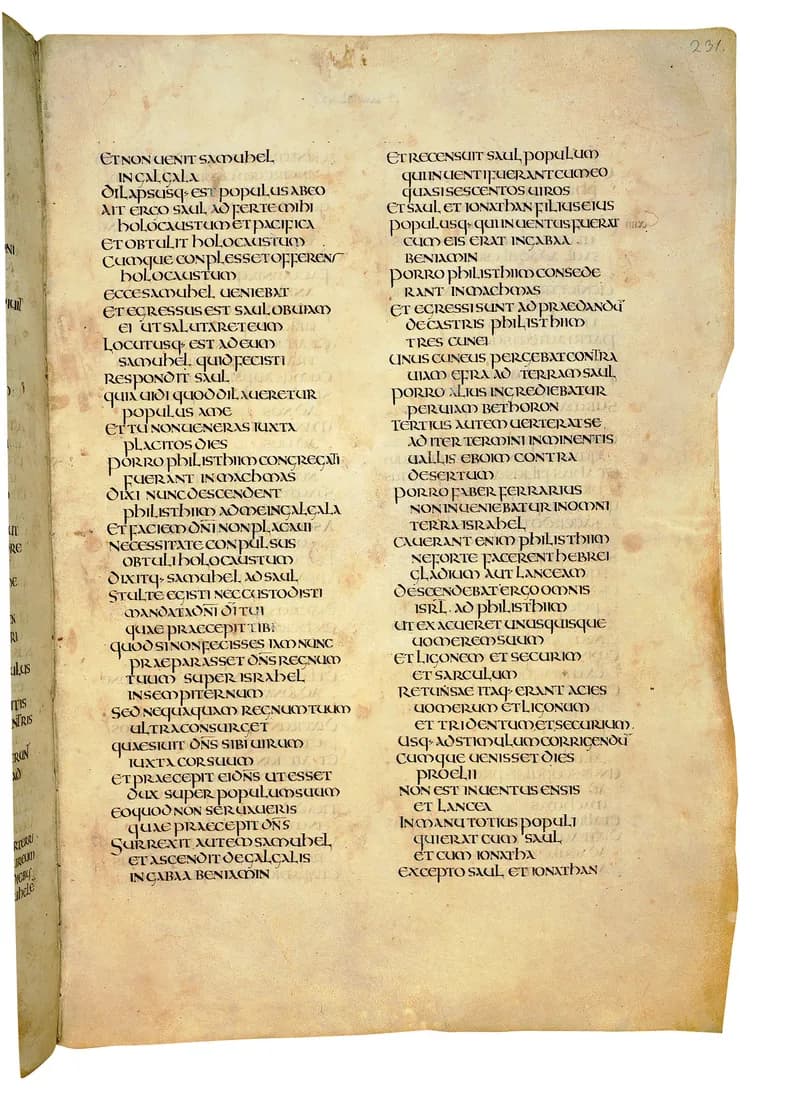 231.
ET NON UENIT SAMUHEL
IN GALGALA
DILAPSUSQ· EST POPULUS AB EO
AIT ERGO SAUL AD FERTE MIHI
HOLOCAUSTUM ET PACIFICA
ET OBTULIT HOLOCAUSTUM
CUMQUE CONPLESSET OFFERENS
HOLOCAUSTUM
ECCE SAMUHEL UENIEBAT
ET EGRESSUS EST SAUL OBUIAM
EI UT SALUTARET EUM
LOCUTUSQ· EST AD EUM
SAMUHEL QUID FECISTI
RESPONDIT SAUL
QUIA UIDI QUOD DILAUERETUR
POPULUS A ME
ET TU NON UENERAS IUXTA
PLACITOS DIES
PORRO PHILISTHIIM CONGREGATI
FUERANT IN MACHMAS
DIXI NUNC DESCENDENT
PHILISTHIIM AD ME IN GALGALA
ET FACIEM DN̄I NON PLACAUI
NECESSITATE CONPULSUS
OBTULI HOLOCAUSTUM
DIXITQ· SAMUHEL AD SAUL
STULTE EGISTI NEC CUSTODISTI
MANDATA DN̄I DĪ TUI
QUAE PRAECEPIT TIBI
QUOD SI NON FECISSES IAM NUNC
PRAEPARASSET DN̄S REGNUM
TUUM SUPER ISRAHEL
IN SEMPITERNUM
SED NEQUAQUAM REGNUM TUUM
ULTRA CONSURGET
QUAESIUIT DN̄S SIBI UIRUM
IUXTA COR SUUM
ET PRAECEPIT EI DN̄S UT ESSET
DUX SUPER POPULUM SUUM
EO QUOD NON SERUAUERIS
QUAE PRAECEPIT DN̄S
SURREXIT AUTEM SAMUHEL
ET ASCENDIT DE GALGALIS
IN GABAA BENIAMIN
ET RECENSUIT SAUL POPULUM
QUI INUENTI FUERANT CUM EO
QUASI SESCENTOS UIROS
ET SAUL ET IONATHAN FILIUS EIUS
POPULUSQ· QUI INUENTUS FUERAT
CUM EIS ERAT IN GABAA
BENIAMIN
PORRO PHILISTHIIM CONSEDE
RANT IN MACHMAS
ET EGRESSI SUNT AD PRAEDANDŪ
DE CASTRIS PHILISTHIIM
TRES CUNEI
UNUS CUNEUS PERGEBAT CONTRA
UIAM EFRA AD TERRAM SAUL
PORRO ALIUS INGREDIEBATUR
PER UIAM BETHORON
TERTIUS AUTEM UERTERAT SE
AD ITER TERMINI INMINENTIS
UALLIS EBOIM CONTRA
DESERTUM
PORRO FABER FERRARIUS
NON INUENIEBATUR IN OMNI
TERRA ISRAHEL
CAUERANT ENIM PHILISTHIIM
NE FORTE FACERENT HEBREI
GLADIUM AUT LANCEAM
DESCENDEBAT ERGO OMNIS
ISRL̄ AD PHILISTHIIM
UT EXACUERET UNUSQUISQUE
UOMEREM SUUM
ET LIGONEM ET SECURIM
ET SARCULUM
RETUNSAE ITAQ· ERANT ACIES
UOMERUM ET LIGONUM
ET TRIDENTUM ET SECURIUM.
USQ· AD STIMULUM CORRIGENDŪ
CUMQUE UENISSET DIES
PROELII
NON EST INUENTUS ENSIS
ET LANCEA
IN MANU TOTIUS POPULI
QUI ERAT CUM SAUL
ET CUM IONATHA
EXCEPTO SAUL ET IONATHAN